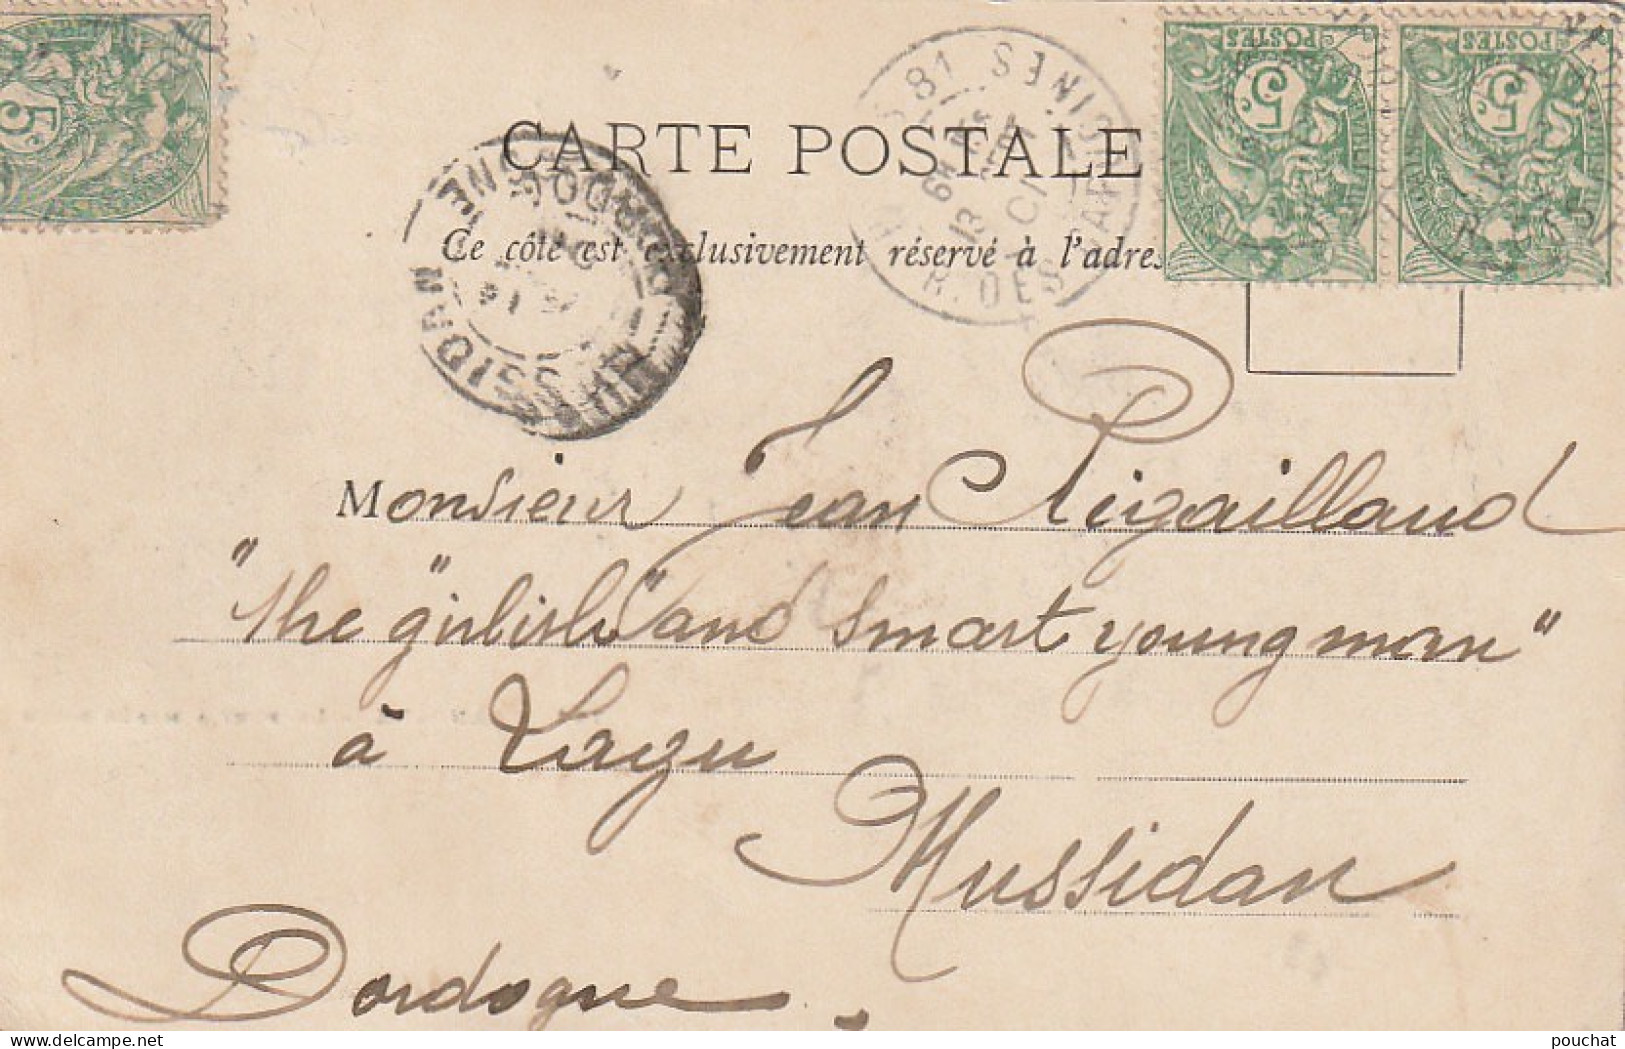 CARTE POSTALE
Ce côté est exclusivement réservé à l'adres
POSTES
5
POSTES
5
5
81
R. DES CAPUCINES
MUSSIDAN
DORDOGNE
Monsieur Jean Pigaillaud
"the "girlish" and smart young man"
à Lagu
Mussidan
Dordogne.
pouchat